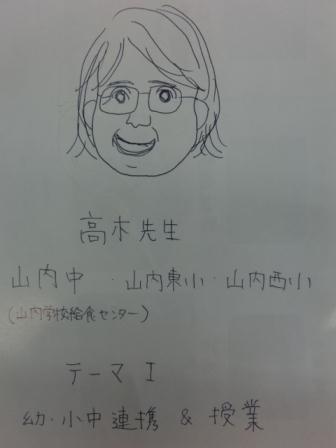 高木先生
山内中・山内東小・山内西小
(山内学校給食センター)
テーマ I
幼・小中連携 & 授業